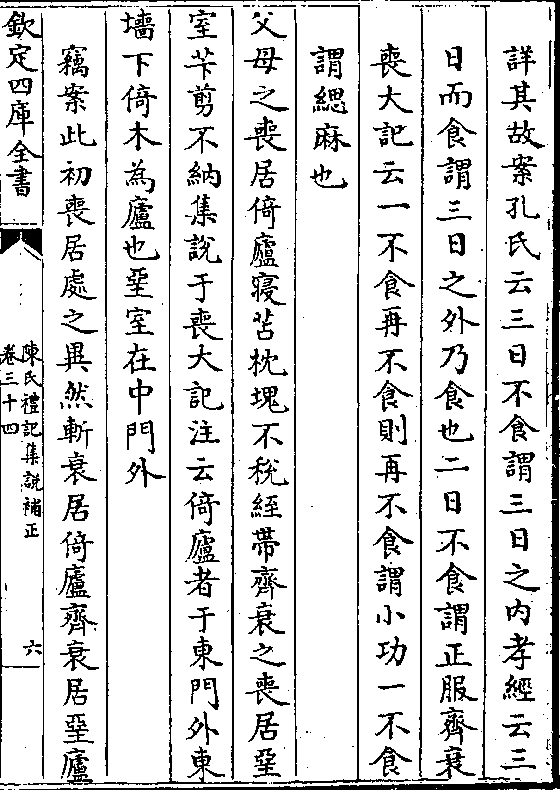 詳其故案孔氏云三日不食謂三日之内孝經云三
日而食謂三日之外乃食也二日不食謂正服齊衰
喪大記云一不食再不食則再不食謂小功一不食
謂緦麻也
父母之喪居倚廬寢苫枕塊不稅絰帶齊衰之喪居堊
室芐剪不納集說于喪大記注云倚廬者于東門外東
墻下倚木為廬也堊室在中門外
竊案此初喪居處之異然斬衰居倚廬齊衰居堊廬
欽定四庫全書
陳氏禮記集說補正
卷三十四
六